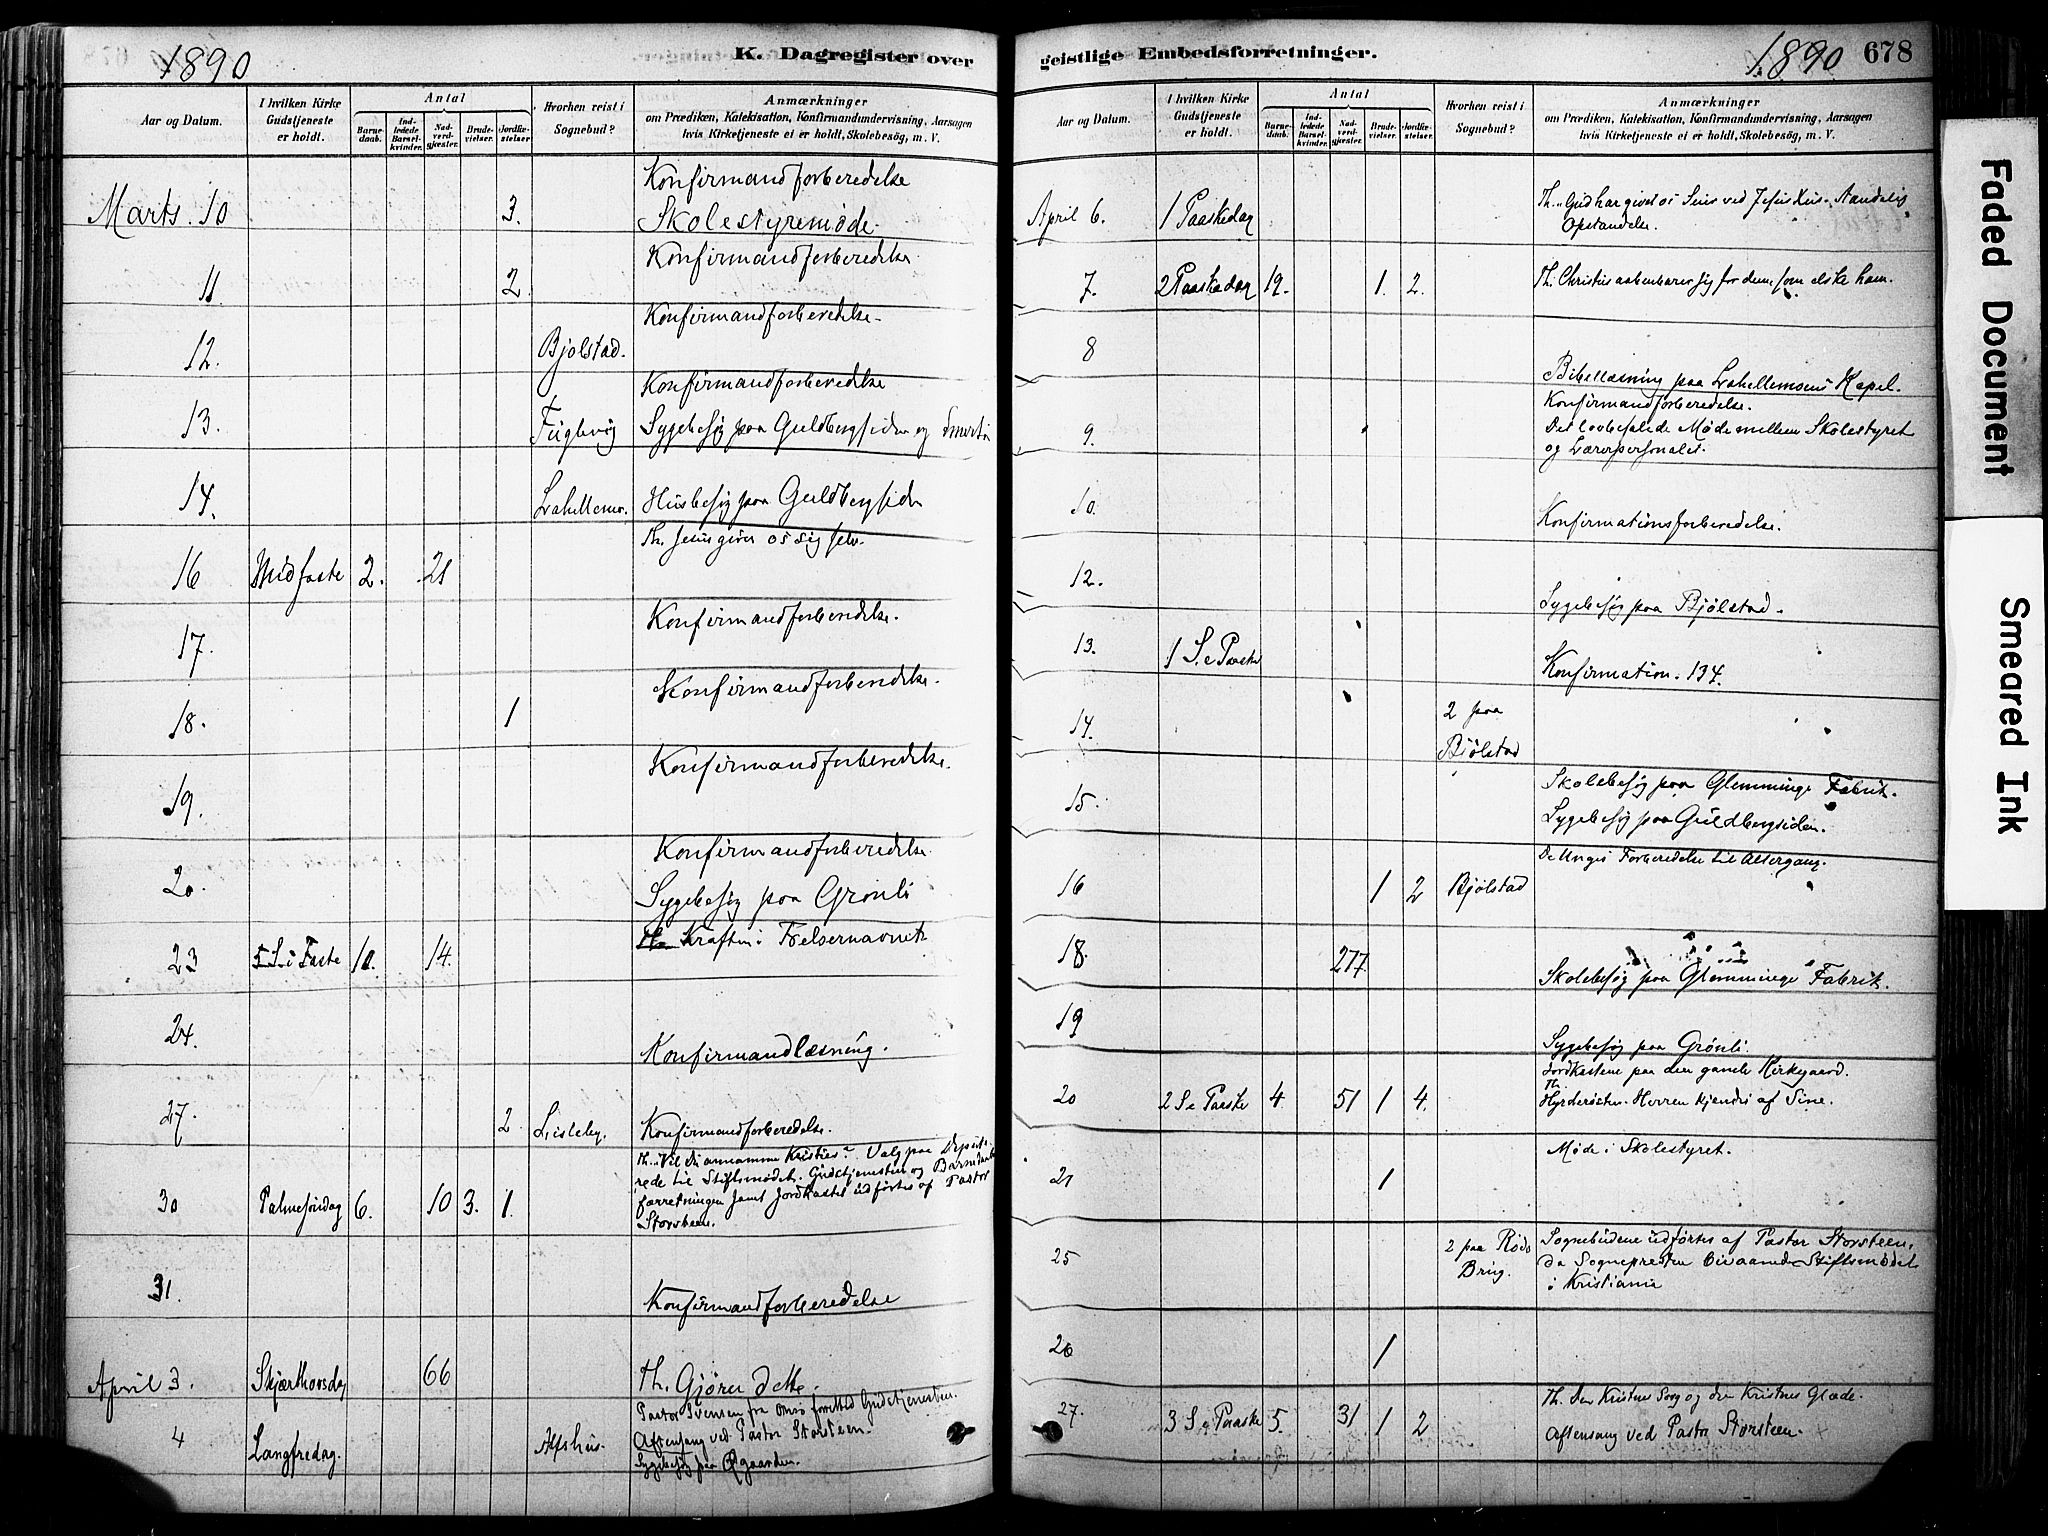 1890
K. Dagregister over
Aar og Datum.
I hvilken Kirke Gudstjeneste er holdt.
Antal
Barnedaab.
Indledede Barselkvinder.
Nadverdgjæster.
Brudevielser.
Jordfæstelser
Hvorhen reist i Sognebud?
Anmærkninger
om Prædiken, Katekisation, Konfirmandundervisning, Aarsagen
hvis Kirketjeneste ei er holdt, Skolebesög, m. V.
Konfirmandforberedelse
Marts. 10 3. Skolestyremøde.
Konfirmandforberedelse.
11. 2.
Konfirmandforberedelse.
12. Bjølstad.
Konfirmandforberedelse
13. Sygebesøg paa Guldbergsiden og
14. Husbesøg paa Guldbergsiden
Th. Jesus giver os sig selv.
16 Midfaste 2. 21
Konfirmandforberedelse.
17.
Konfirmandforberedelse.
18. 1
Konfirmandforberedelse.
19.
Konfirmandforberedelse.
20. Sygebesøg paa Grønli
23 5 S. i Faste 10. 14. Kraften i Frelsernavnet
24. Konfirmandlæsning.
27. 2 Lisleby. Konfirmandforberedelse.
Th. "Vil Du annamme Kristus?" Valg paa Depute-
rede til Stiftsmødet. Gudstjenesten og Barnedaabs
30 Palmesøndag 6. 10 3. 1. forretningen samt Jordkastet udførtes af Pastor
Storsteen.
31. Konfirmandforberedelse
April 3. Skjærthorsdag 66 Th. Gjører dette.
Pastor Svensen fra Onsø forretted Gudstjenesten.
4 Langfredag. Alshus. Aftensang ved Pastor Storsteen.
Sygebesøg paa
geistlige Embedsforretninger.
1890 678
Aar og Datum.
I hvilken Kirke Gudstjeneste er holdt.
Antal
Barnedaab.
Indledede Barselkvinder.
Nadverdgjæster.
Brudevielser.
Jordfæstelser.
Hvorhen reist i Sognebud?
Anmærkninger
om Prædiken, Katekisation, Konfirmandundervisning, Aarsagen
hvis Kirketjeneste ei er holdt, Skolebesög, m. V.
April 6. 1 Paaskedag Th. "Gud har givet os Seier ved Jesus Xus. Aandelig
Opstandelse.
7. 2 Paaskedag 19. 1. 2. Th. Christus aabenbarer sig for dem, som elske ham.
8
Bibellæsning paa Kapel.
Konfirmandforberedelse.
9. Det lovbefalede Møde mellem Skolestyret
og Lærerpersonalet.
10. Konfirmationsforberedelse.
12. Sygebesøg paa Bjølstad.
13. 1 S. e Paaske Konfirmation. 134.
14. 2 paa Bjølstad
15. Skolebesøg paa Glemminge Fabrik.
Sygebesøg paa Guldbergsiden.
De Unges Forberedelse til Altergang.
16 1 2 Bjølstad
18. 277. Skolebesøg paa Glemminge Fabrik.
19 Sygebesøg paa Grønli.
Jordkastene paa den gamle Kirkegaard.
20 2 S e Paaske 4. 51 1 4. Th. Hyrderøsten. Herren kjendes af Sine.
Møde i Skolestyret.
21 1
25 2 paa Røds Brug. Sognebudene udførtes af Pastor Storsteen,
da Sognepresten bivaanede Stiftsmødet
i Kristiania
26 1
27. 3 S e Paaske 5. 31 1 2 Th. Den Kristnes Sorg og den Kristnes Glæde.
Aftensang ved Pastor Storsteen.
Faded Document
Smeared Ink